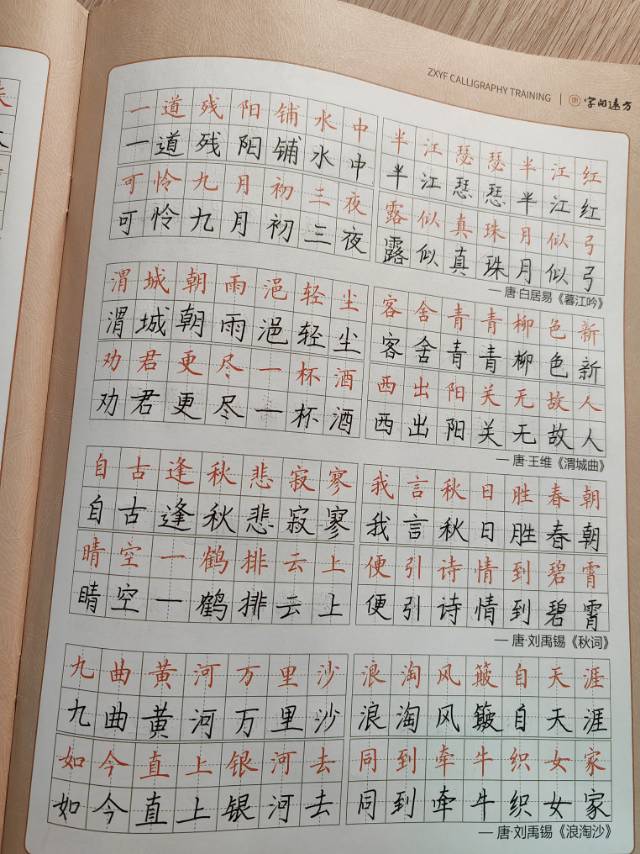 ZXYF CALLIGRAPHY TRAINING
一道残阳铺水中
一道残阳铺水中
半江瑟瑟半江红
半江瑟瑟半江红
可怜九月初三夜
可怜九月初三夜
露似真珠月似弓
露似真珠月似弓
— 唐·白居易《暮江吟》
渭城朝雨浥轻尘
渭城朝雨浥轻尘
客舍青青柳色新
客舍青青柳色新
劝君更尽一杯酒
劝君更尽一杯酒
西出阳关无故人
西出阳关无故人
— 唐·王维《渭城曲》
自古逢秋悲寂寥
自古逢秋悲寂寥
我言秋日胜春朝
我言秋日胜春朝
晴空一鹤排云上
晴空一鹤排云上
便引诗情到碧霄
便引诗情到碧霄
— 唐·刘禹锡《秋词》
九曲黄河万里沙
九曲黄河万里沙
浪淘风簸自天涯
浪淘风簸自天涯
如今直上银河去
如今直上银河去
同到牵牛织女家
同到牵牛织女家
— 唐·刘禹锡《浪淘沙》